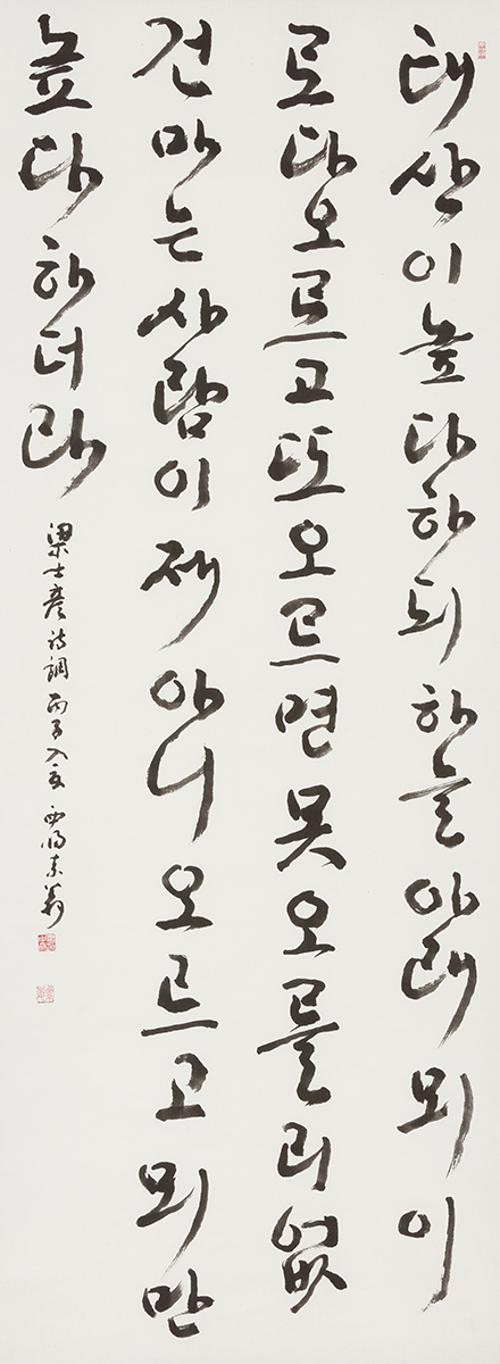 태산이높다하되하늘아래뫼이
로다오르고또오르면못오를리없
건마는사람이제아니오르고뫼만
높다하더라
梁士彦詩調 丙子入夏